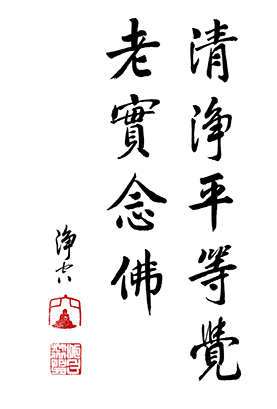 清淨平等覺
老實念佛
淨空